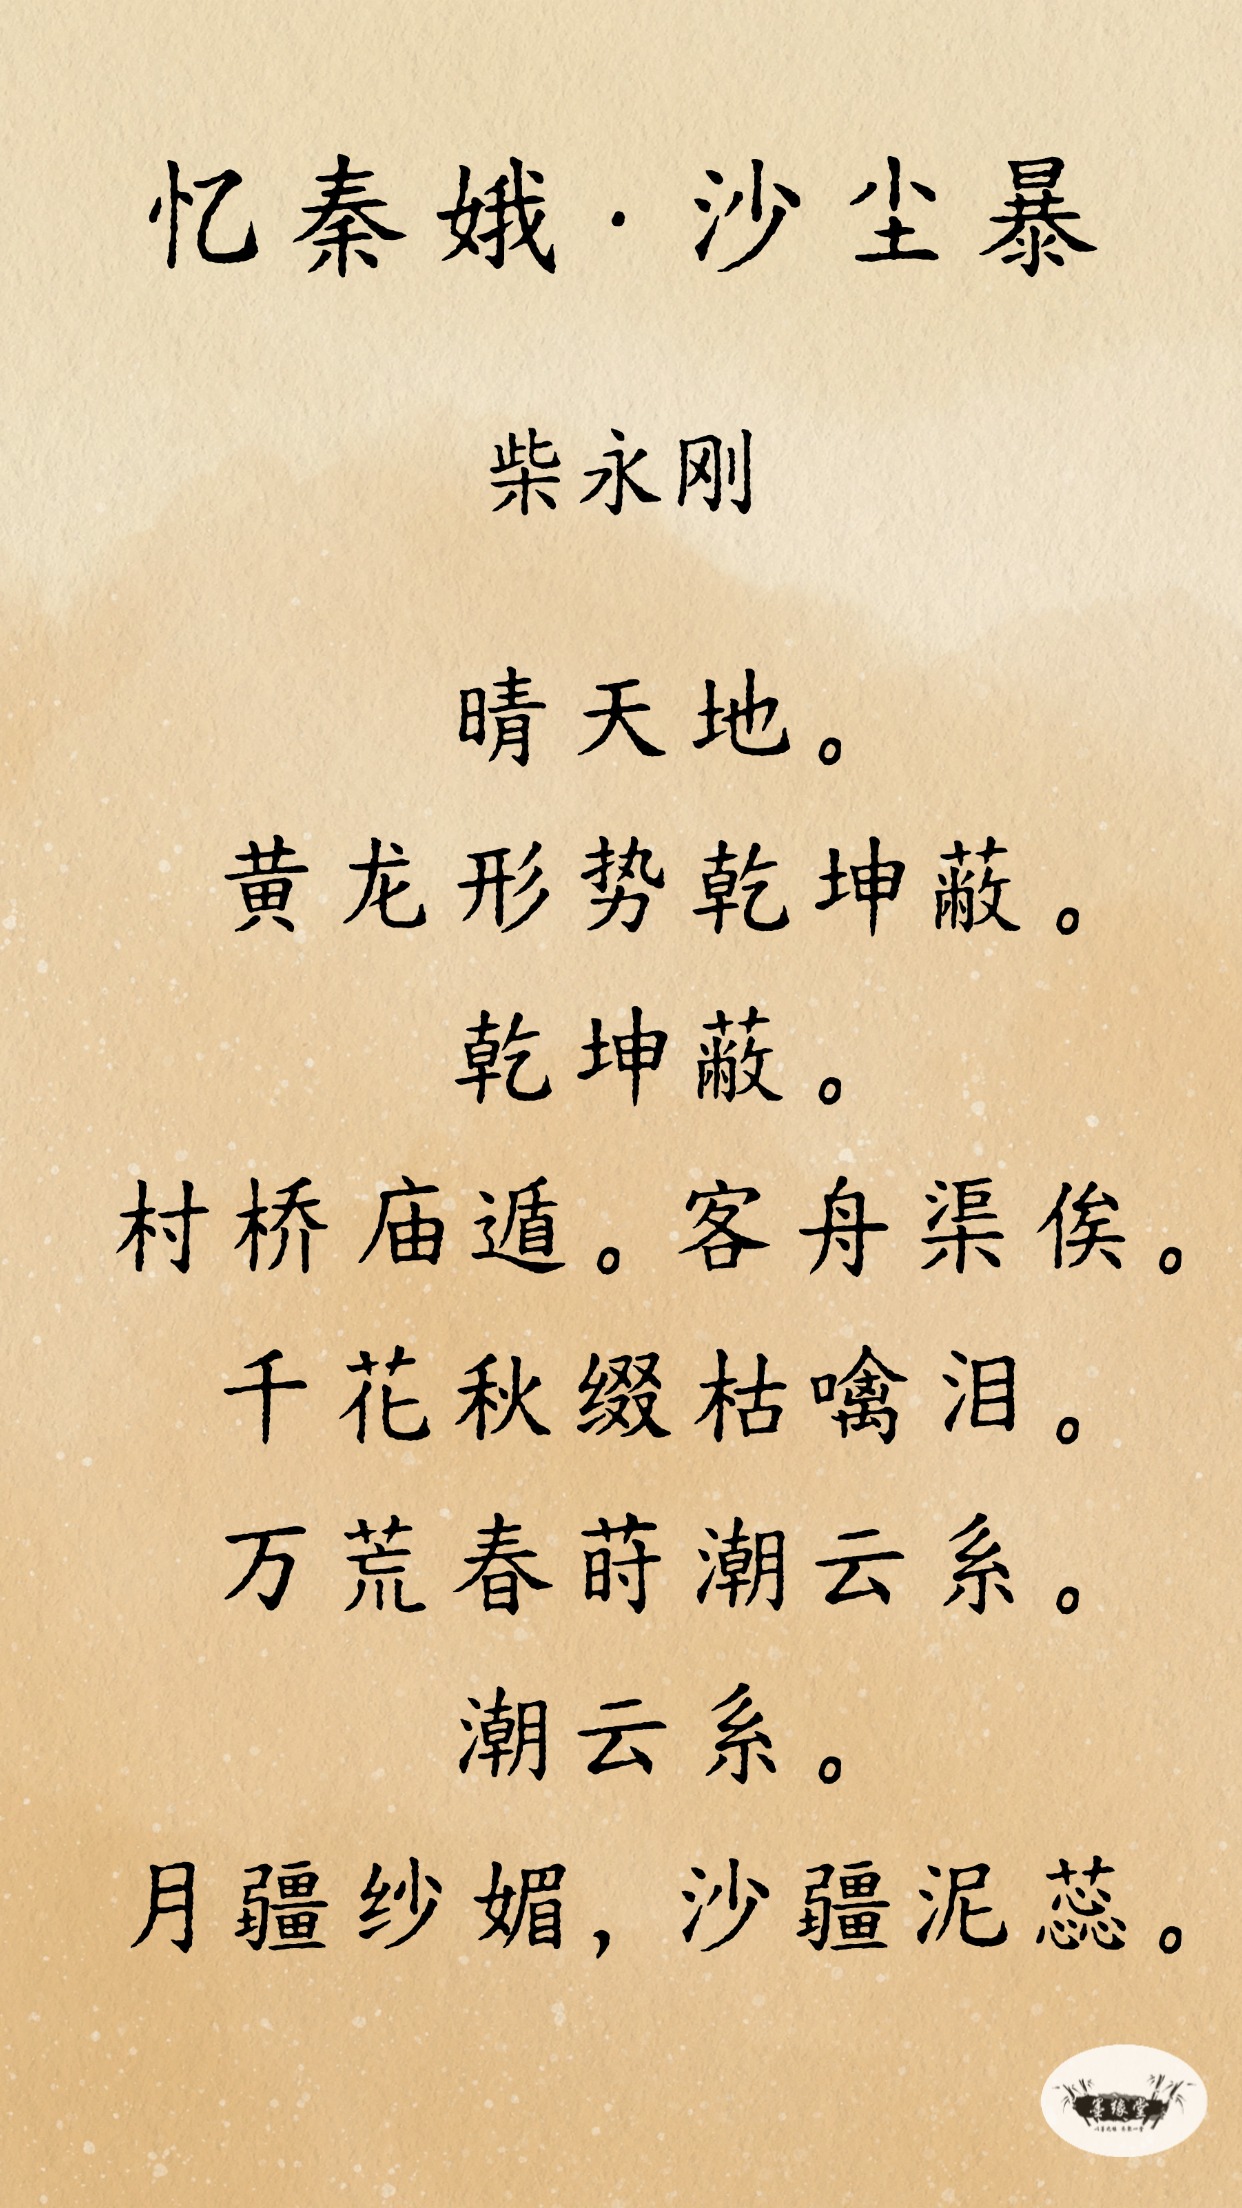 忆秦娥·沙尘暴
柴永刚
晴天地。
黄龙形势乾坤蔽。
乾坤蔽。
村桥庙遁。客舟渠俟。
千花秋缀枯噙泪。
万荒春莳潮云系。
潮云系。
月疆纱媚，沙疆泥蕊。
墨缘堂